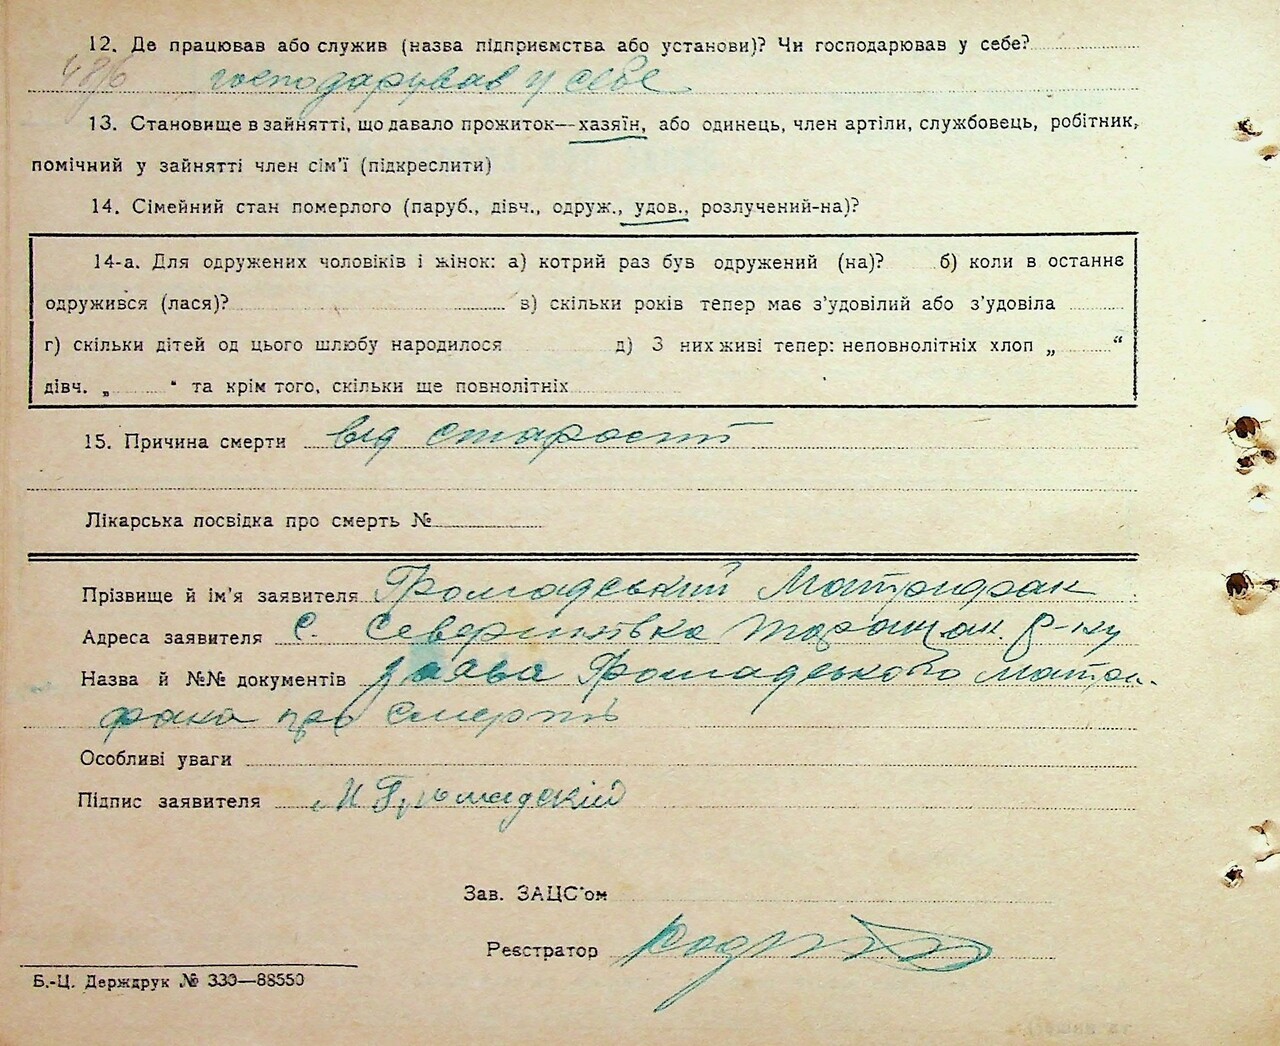 12. Де працював або служив (назва підприємства або установи)? Чи господарював у себе?
48/6 господарував у себе
13. Становище в зайнятті, що давало прожиток—хазяїн, або одинець, член артіли, службовець, робітник,
помічний у зайнятті член сім'ї (підкреслити)
14. Сімейний стан померлого (паруб., дівч., одруж., удов., розлучений-на)?
14-а. Для одружених чоловіків і жінок: а) котрий раз був одружений (на)? б) коли в останнє
одружився (лася)? в) скільки років тепер має з'удовілий або з'удовіла
г) скільки дітей од цього шлюбу народилося д) З них живі тепер: неповнолітніх хлоп „ “
дівч. „ “ та крім того, скільки ще повнолітніх
15. Причина смерти від старости
Лікарська посвідка про смерть №
Прізвище й ім'я заявителя Громадський Матрифан
Адреса заявителя С. Северинівка Таращан. р-ну
Назва й №№ документів заява Громадського Матри-
фана про смерть
Особливі уваги
Підпис заявителя М Громадскій
Зав. ЗАЦС'ом
Реєстратор
Б.-Ц. Держдрук № 330—88550